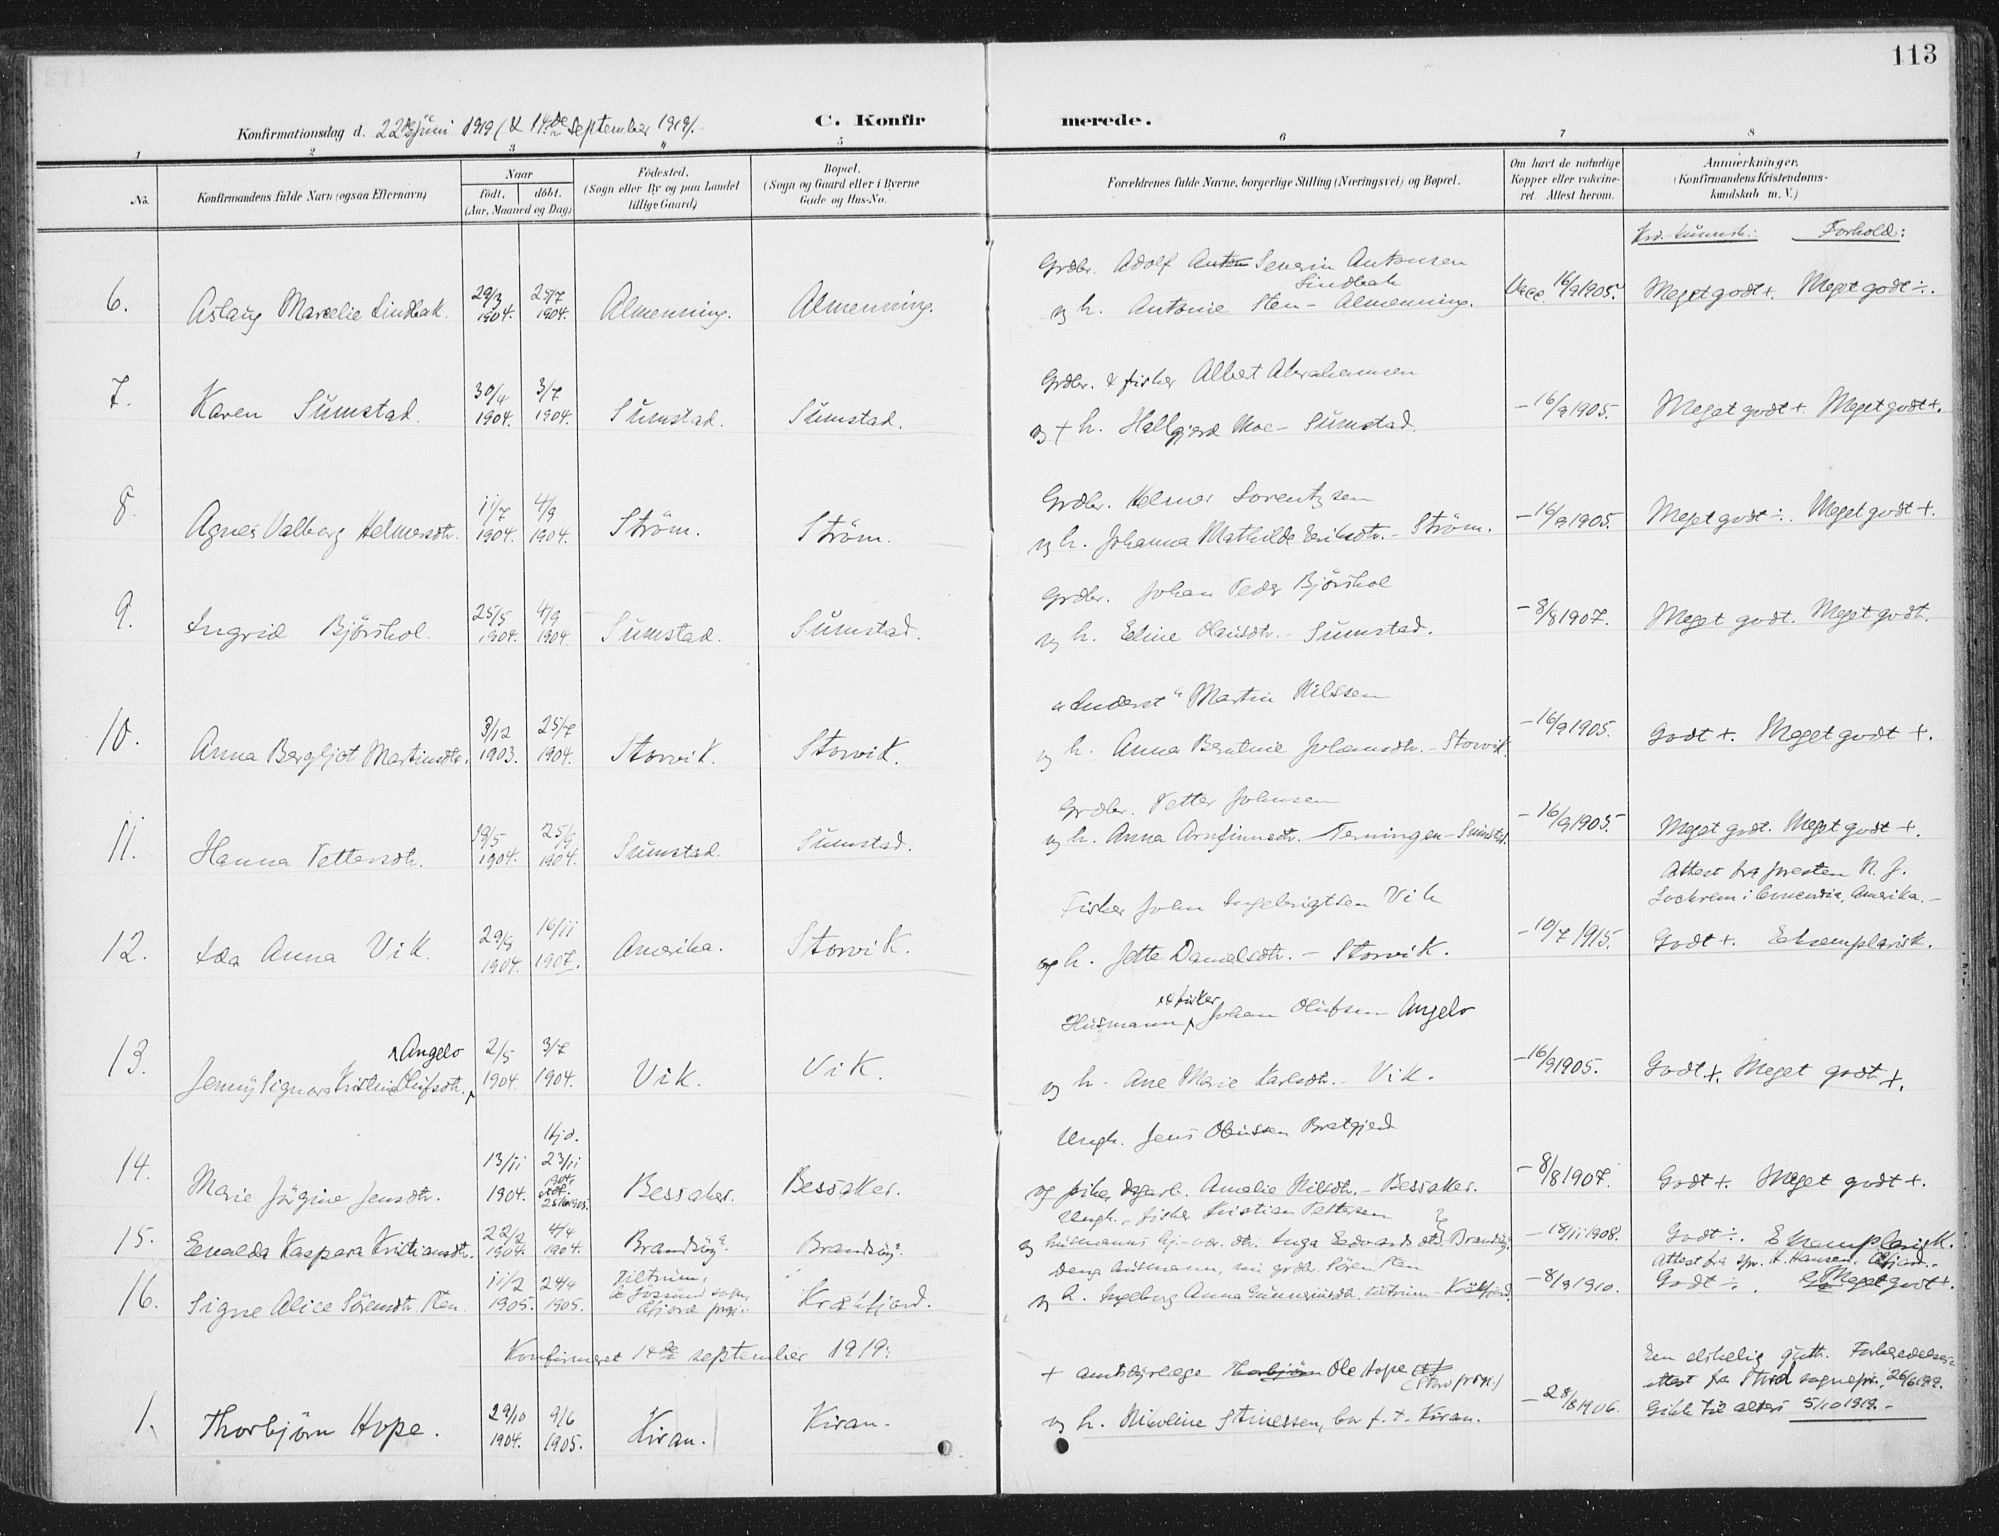 113
Konfirmationsdag d. 22de juni 1919 (& 14de september 1919).
C. Konfirmerede.
1 2 3 4 5 6 7 8
No.
Konfirmandens fulde Navn (ogsaa Efternavn)
Naar
født. døbt.
(Aar, Maaned og Dag)
Fødested.
(Sogn eller By og paa Landet
tillige Gaard)
Bopæl.
(Sogn og Gaard eller i Byerne
Gade og Hus-No.
Forældrenes fulde Navne, borgerlige Stilling (Næringsvei) og Bopæl.
Om havt de naturlige
Kopper eller vakcine-
ret. Attest herom.
Anmærkninger.
(Konfirmandens Kristendoms-
kundskab m. V.)
Krd. kundsk: Forhold:
Grdbr. Adolf Anton Severin Antonsen
Sindbak
6. Aslaug Marcelie Sindbak. 29/3 1904. 25/7 1904. Almenning. Almenning. og h. Antonie Sten - Almenning. Vacc. 16/9 1905. Meget godt +. Meget godt ÷.
Grdbr. & fisker Albert Abrahamsen
7. Karen Sumstad. 30/4 1904. 3/7 1904. Sumstad. Sumstad. og + h. Hallgjerd Moe - Sumstad. - 16/9 1905. Meget godt +. Meget godt +.
Grdbr. Helmer Lorentzen
8. Agnes Valborg Helmersdtr. 11/7 1904. 4/9 1904. Strøm. Strøm. og h. Johanna Mathilde Eriksdtr. - Strøm. - 16/9 1905. Meget godt ÷. Meget godt +.
Grdbr. Johan Peder Bjørshol
9. Ingrid Bjørshol. 25/5 1904. 4/9 1904. Sumstad. Sumstad. og h. Eline Olausdtr. - Sumstad. - 8/8 1907. Meget godt. Meget godt.
"Inderst" Martin Nilssen
10. Anna Bergljot Martinsdtr. 3/12 1903. 25/7 1904. Storvik. Storvik. og h. Anna Bentine Johansdtr. - Storvik. - 16/9 1905. Godt +. Meget godt +.
Grdbr. Petter Johnsen
11. Hanna Pettersdtr. 19/5 1904. 25/9 1904. Sumstad. Sumstad. og h. Anna Arnfinnsdtr. Terningen - Sumstad. - 16/9 1905. Meget godt. Meget godt +.
Attest fra presten N. J.
Lockrem i Amerika. -
Fisker John Ingebrigtsen Vik
12. Ida Anna Vik. 29/8 1904. 16/11 1907. Amerika. Storvik. og h. Jette Danielsdtr. - Storvik. - 10/7 1915. Godt +. Eksemplarisk.
Husmann & fisker Johan Olufsen Angelo
13. Jenny Signora Kristine Olufsdtr. Angelo 2/5 1904. 3/7 1904. Vik. Vik. og h. Ane Marie Karlsdtr. - Vik. - 16/9 1905. Godt +. Meget godt +.
Ungk. Jens Olaussen Bratgjerd
14. Marie Jørgine Jensdtr. 13/11 1904. Hjd. 23/11 1904. Bessaker. Bessaker. og pike Amalie Nilsdtr. - Bessaker. - 8/8 1907. Godt +. Meget godt +.
Ungk., fisker Kristian Pettersen
15. Evalda Kaspara Kristiansdtr. 22/2 1904. 4/4 1904. Brandsøy. Brandsøy. og dtr. Inga Edvardsdtr. Brandsøy. - 18/11 1908. Godt ÷. Eksemplarisk.
Attest fra spr. H. Hansen, Åfjord. -
husmann, nu grdbr. Sören Sten
16. Signe Alice Sörensdtr. Sten 11/2 1905. 24/4 1905. Tiltrum, Åfjord prgj. Kråkfjord. og h. Ingeborg Anna Gunneriusdtr. Tiltrum - Kråkfjord. - 8/9 1910. Godt ÷. Meget godt +.
Konfirmeret 14de september 1919:
En elskelig gutt. Forberedelses-
+ amtsdyrlæge Thorbjørn Ole Hope (Stord prgj.) attest fra Stord sognepr. 26/6 1919.
1. Thorbjørn Hope. 29/10 1904. 9/6 1905. Kiran. Kiran. og h. Nikoline Stinessen, bor f. t. Kiran. - 28/8 1906. Gikk til alters 5/10 1919. -